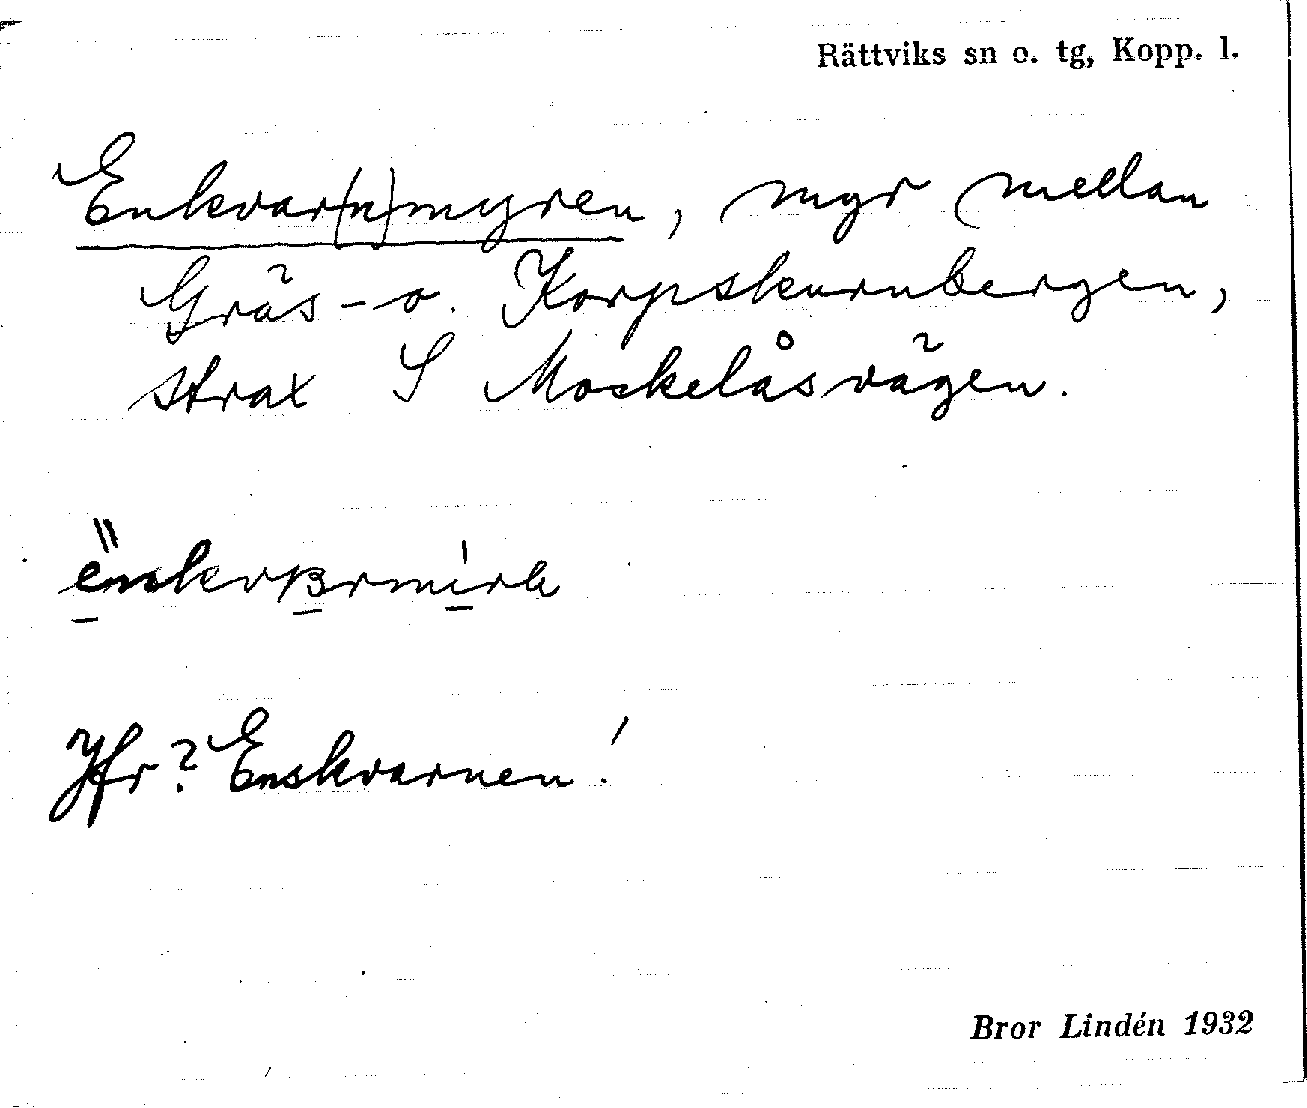 Rättviks sn o. tg, Kopp. l.
Enkvar(n)myren, myr mellan
Gräs- o. Korpskurnbergen,
strax S Mockelåsvägen.
Jfr? Enskvarnen!
Bror Lindén 1932